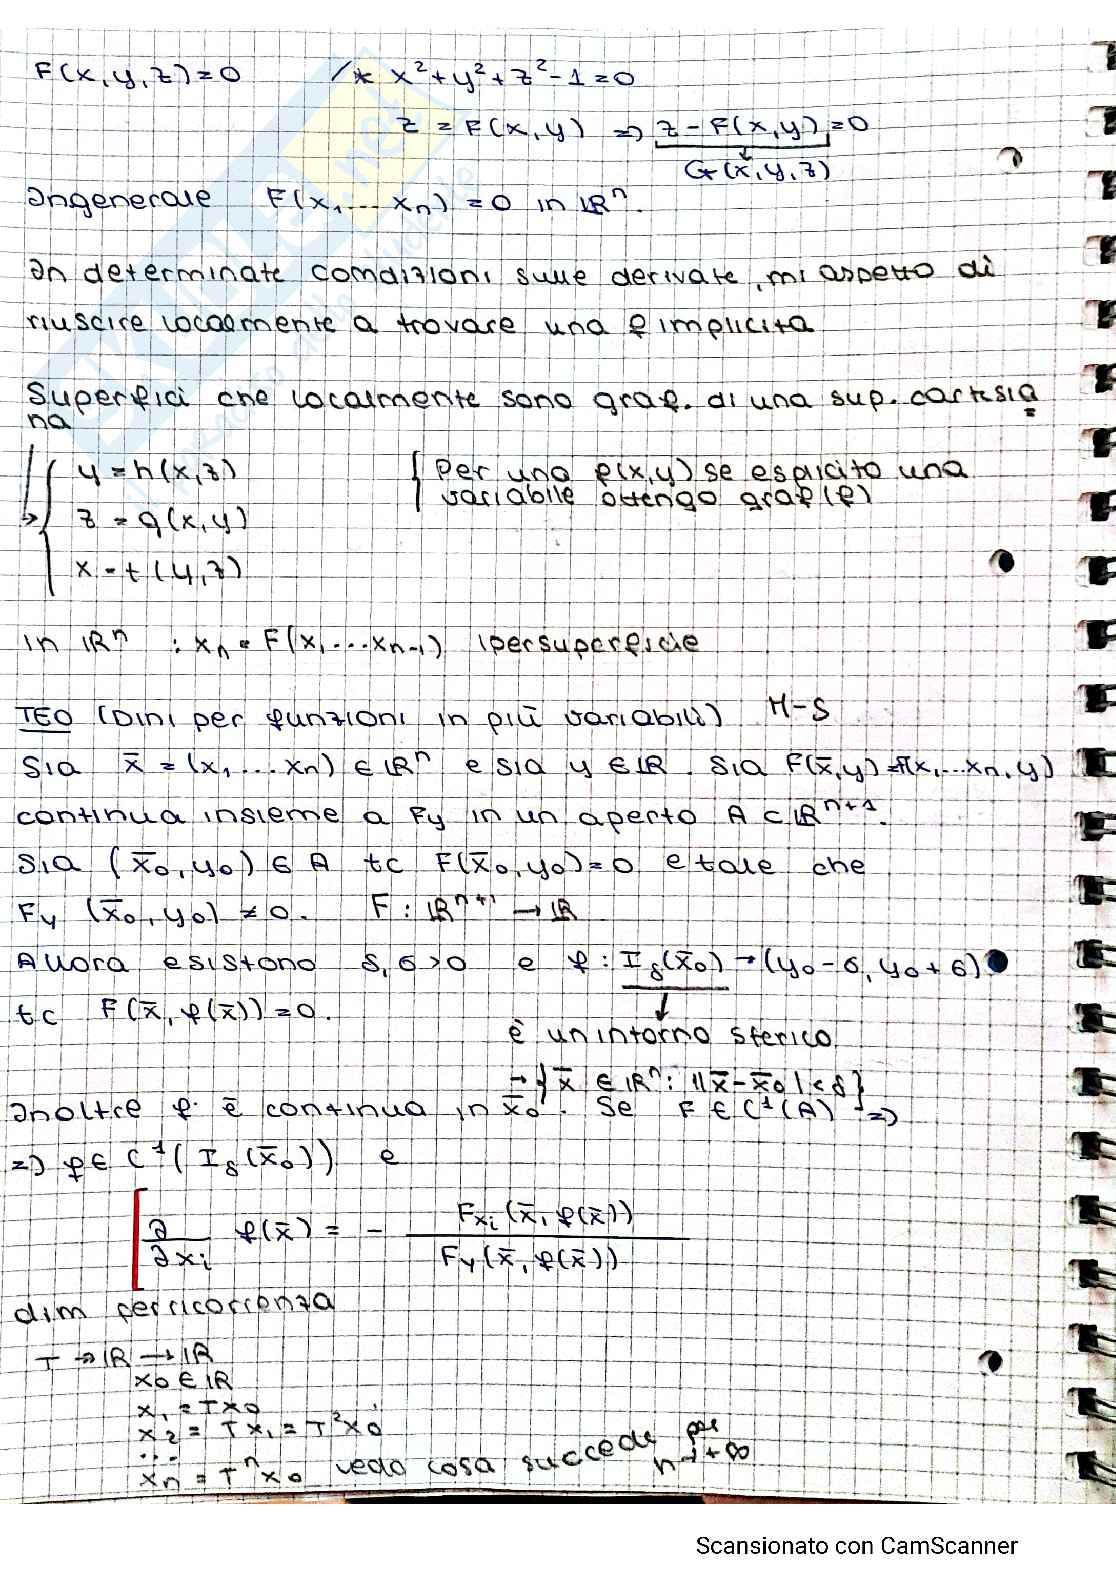 F(x, y, z) = 0 /* x² + y² + z² - 1 = 0
z = F(x, y) => z - F(x, y) = 0
G(x, y, z)
In generale F(x₁ ... xₙ) = 0 in ℝⁿ.
In determinate condizioni sulle derivate, mi aspetto di
riuscire localmente a trovare una f implicita
Superfici che localmente sono graf. di una sup. cartesia
na
y = h(x, z) { Per una f(x, y) se esplicito una
variabile ottengo graf(f)
z = g(x, y)
x = t(y, z)
In ℝⁿ : xₙ = F(x₁ ... xₙ₋₁) ipersuperficie
TEO (Dini per funzioni in più variabili) M-S
Sia x̄ = (x₁ ... xₙ) ∈ ℝⁿ e sia y ∈ ℝ. Sia F(x̄, y) = F(x₁ ... xₙ, y)
continua insieme a Fy in un aperto A ⊂ ℝⁿ⁺¹.
Sia (x̄₀, y₀) ∈ A tc F(x̄₀, y₀) = 0 e tale che
Fy (x̄₀, y₀) ≠ 0. F : ℝⁿ⁺¹ → ℝ
Allora esistono δ, σ > 0 e f : I_δ(x̄₀) → (y₀ - σ, y₀ + σ)
tc F(x̄, f(x̄)) = 0.
è un intorno sferico
→ { x̄ ∈ ℝⁿ : ||x̄ - x̄₀| < δ }
Inoltre f è continua in x̄₀. Se F ∈ C¹(A) =>
=> f ∈ C¹(I_δ(x̄₀)) e
∂/∂xᵢ f(x̄) = - Fxᵢ(x̄, f(x̄)) / Fy(x̄, f(x̄))
dim per ricorrenza
T → ℝ → ℝ
x₀ ∈ ℝ
x₁ = Tx₀
x₂ = Tx₁ = T²x₀
...
xₙ = Tⁿx₀ vedo cosa succede per n → +∞
Scansionato con CamScanner